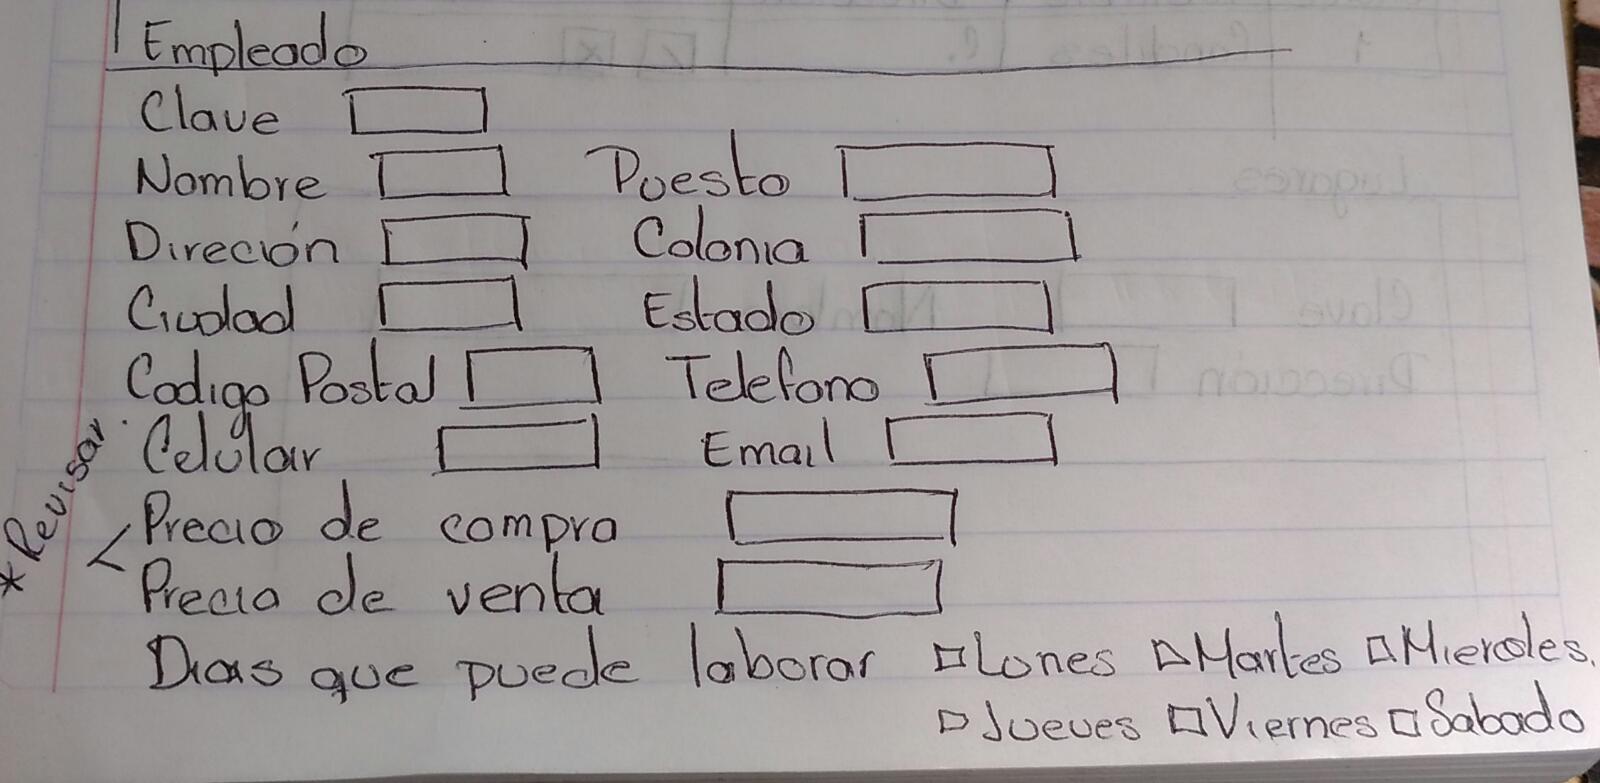 Empleado
Clave
Nombre Puesto
Direción Colonia
Ciudad Estado
Codigo Postal Telefono
Celular Email
* Revisar
Precio de compra
Precio de venta
Dias que puede laborar Lunes Martes Miercoles.
Jueves Viernes Sabado